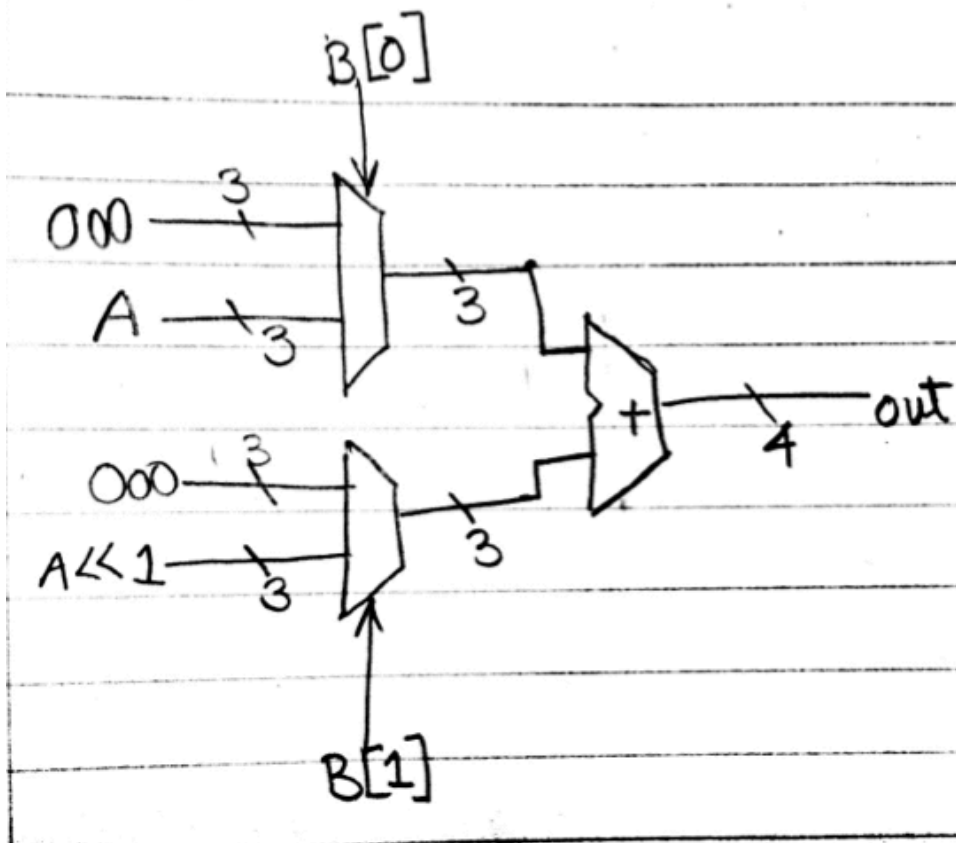 B[0]
000
3
A
3
3
+
4
out
000
3
A<<1
3
3
B[1]